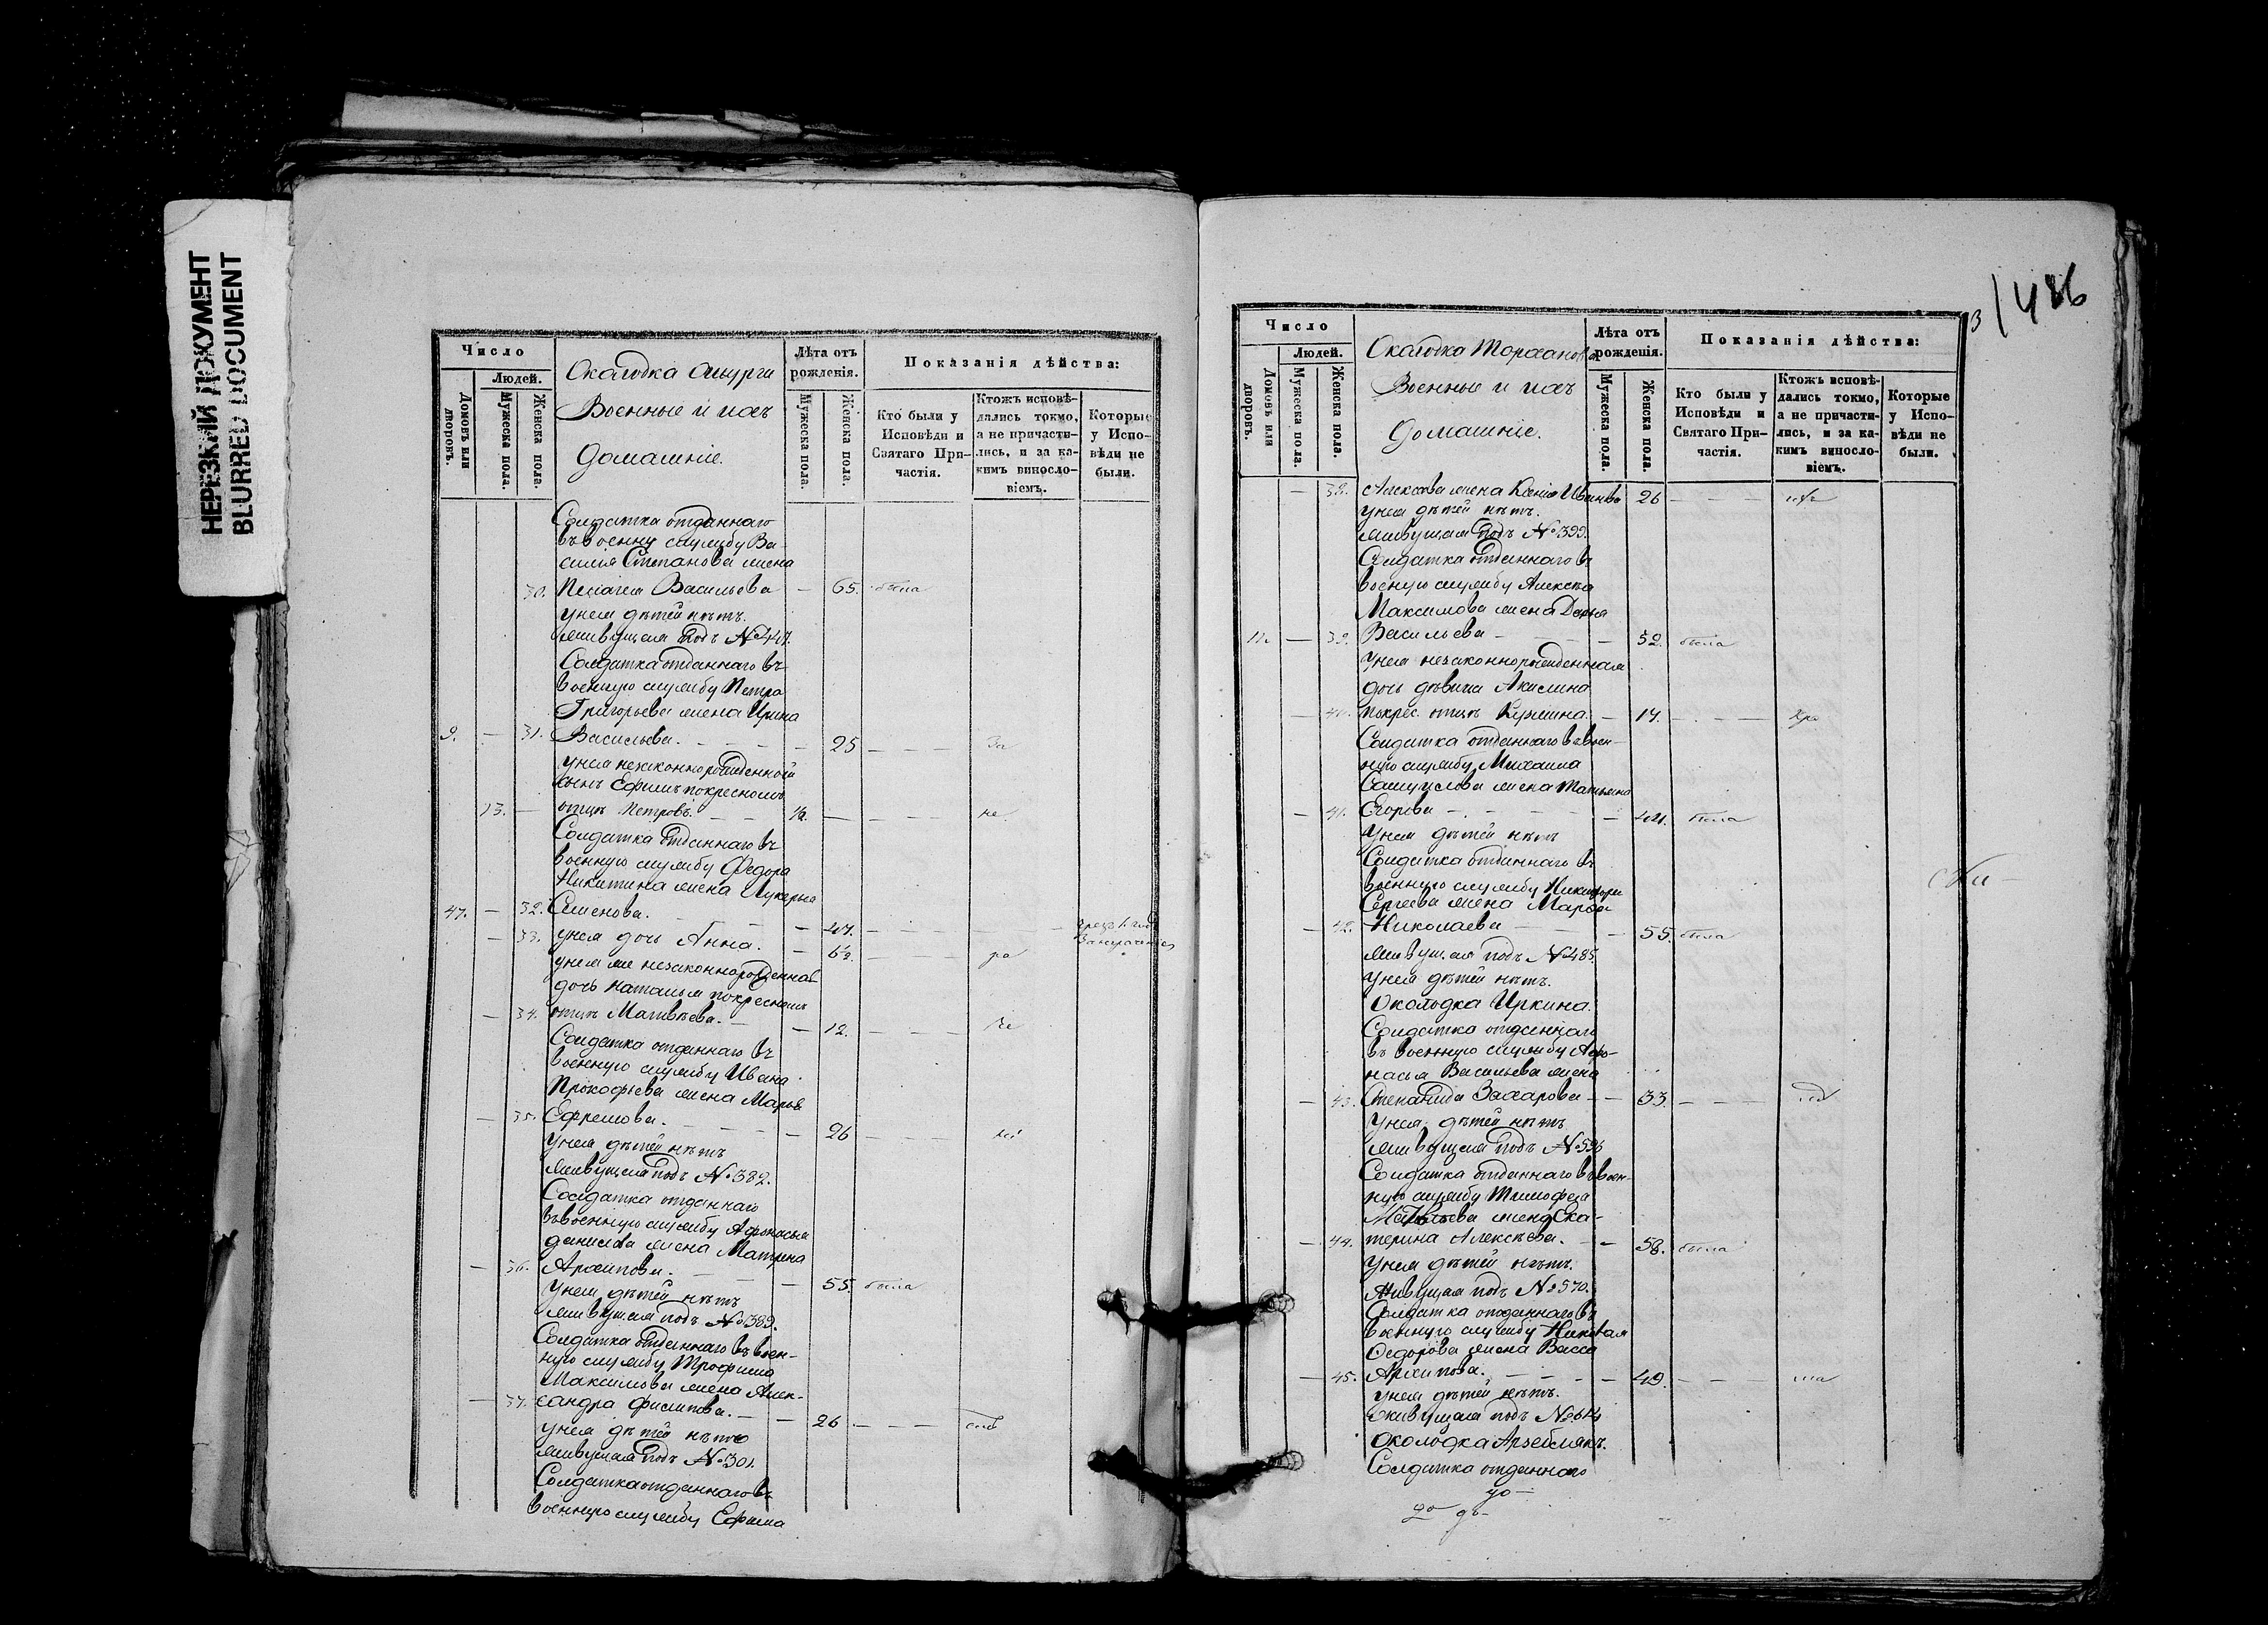 НЕРЕЗКИЙ ДОКУМЕНТ
BLURRED DOCUMENT
Число
Людей.
Домовъ или дворовъ.
Мужеска пола.
Женска пола.
Околодка
Военные и ихъ
домашніе.
Лѣта отъ рожденія.
Мужеска пола.
Женска пола.
Показанія дѣйства:
Кто были у Исповѣди и Святаго Причастія.
Ктожъ исповѣдались токмо, а не причастились, и за какимъ винословіемъ.
Которые у Исповѣди не были.
Солдатка отданнаго
въ военну службу Ва
силія Степанова жена
30. Пелагея Васильева — 65. была
унея дѣтей нѣтъ.
живущая подъ №
Солдатка отданнаго въ
военную службу Петра
Григорьева жена Ирина
9. — 31. Васильева. — 25 — — —
унея незаконнорожденной
сынъ Ефимъ покресному
13. — отцѣ Петровъ. — — — — —
Солдатка отданнаго въ
военную службу Федора
Никитина жена Лукерья
47. — 32. Семенова. —
— 33. унея дочь Анна. —
унея же незаконнорожденная
дочь Наталья покресному
— 34. отцѣ Матвѣева. — 12. — — —
Солдатка отданнаго въ
военную службу Ивана
Прокофьева жена Марья
— 35. Ефремова. — 26 — — —
унея дѣтей нѣтъ
живущая подъ № 382.
Солдатка отданнаго
въ военную службу Афонасья
Данилова жена Матрена
— 36. Архипова. — 55. была
унея дѣтей нѣтъ
живущая подъ № 389.
Солдатка отданнаго въ воен-
ную службу Трофима
Максимова жена Алек-
— 37. сандра Филипова. — 26 — — —
унея дѣтей нѣтъ
живущая подъ № 301.
Солдатка отданнаго въ
военную службу Ефима
3
1486
Число
Людей.
Домовъ или дворовъ.
Мужеска пола.
Женска пола.
Околодка
Военные и ихъ
домашніе.
Лѣта отъ рожденія.
Мужеска пола.
Женска пола.
Показанія дѣйства:
Кто были у Исповѣди и Святаго Причастія.
Ктожъ исповѣдались токмо, а не причастились, и за какимъ винословіемъ.
Которые у Исповѣди не были.
— 38. жена Ксенія Иванова 26 — — —
унея дѣтей нѣтъ.
живущая подъ № 399.
Солдатка отданнаго въ
военную службу Алексѣя
Максимова жена Дарья
— 39. Васильева — — 52. была
унея незаконнорожденная
дочь дѣвица Акилина
— 40. покрес. отцѣ — 14. — — —
Солдатка отданнаго въ воен-
ную службу Михаила
Самуилова жена Татьяна
— 41. Егорова — — была
унея дѣтей нѣтъ
Солдатка отданнаго въ
военную службу Никифора
Сергеева жена Марья
— 42. Николаева — 55. была
живущая подъ № 485.
унея дѣтей нѣтъ.
Околодка Иркина.
Солдатка отданнаго
въ военную службу Афо-
насья Васильева жена
— 43. Степанида Захарова — — 33. — — —
унея дѣтей нѣтъ
живущая подъ № 536
Солдатка отданнаго въ воен-
ную службу Тимофея
Матвѣева жена Ека-
— 44. терина Алексѣева. — — 58. была
унея дѣтей нѣтъ.
живущая подъ № 570.
Солдатка отданнаго въ
военную службу Николая
Федорова жена Васса
— 45. Архипова. — — 49. — — —
унея дѣтей нѣтъ.
живущая подъ № 614
Околодка
Солдатка отданнаго